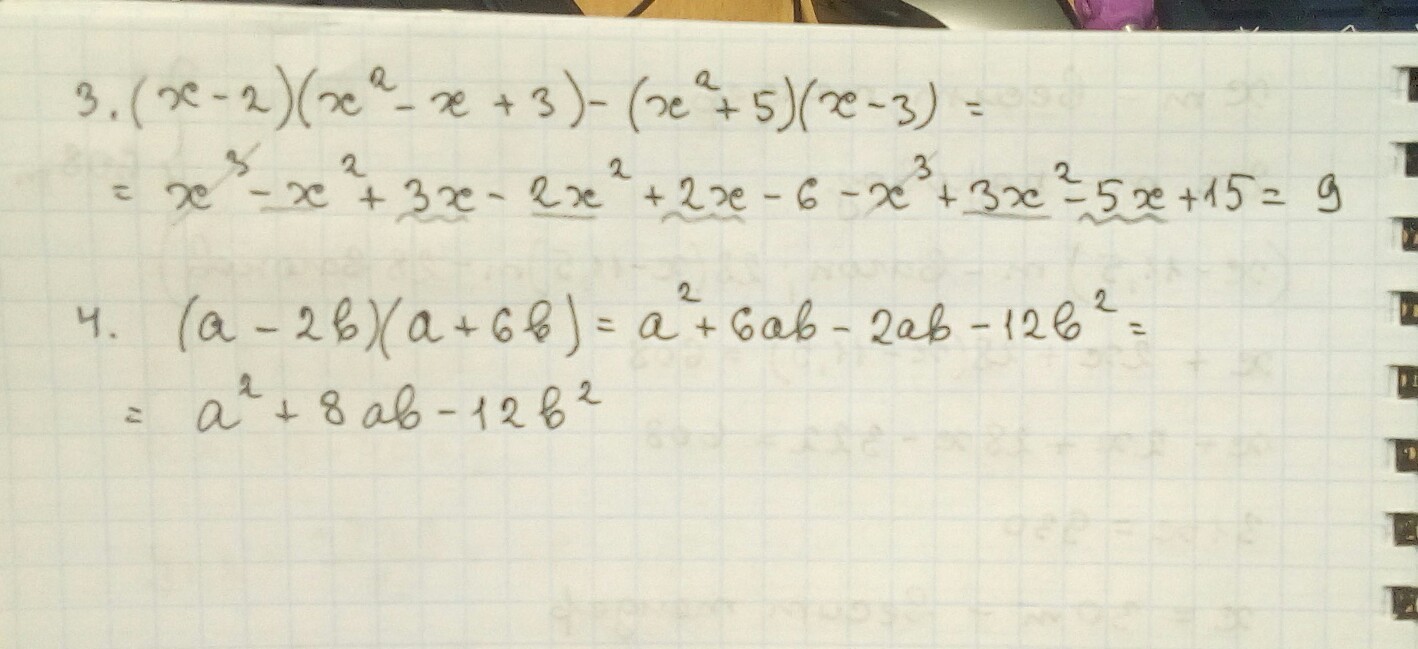 3. (x - 2)(x² - x + 3) - (x² + 5)(x - 3) =
= x³ - x² + 3x - 2x² + 2x - 6 - x³ + 3x² - 5x + 15 = 9
4. (a - 2b)(a + 6b) = a² + 6ab - 2ab - 12b² =
= a² + 8ab - 12b²